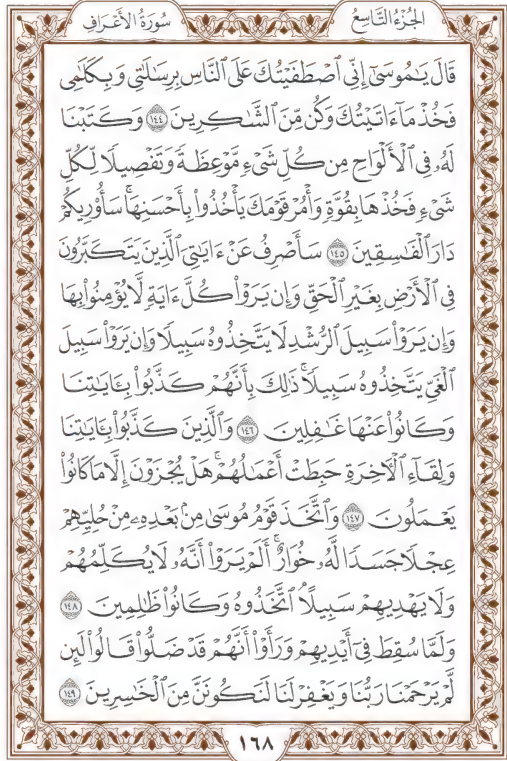 الجُزْءُ التَّاسِعُ
سُورَةُ الأَعْرَافِ
قَالَ يَٰمُوسَىٰٓ إِنِّي ٱصۡطَفَيۡتُكَ عَلَى ٱلنَّاسِ بِرِسَٰلَٰتِي وَبِكَلَٰمِي
فَخُذۡ مَآ ءَاتَيۡتُكَ وَكُن مِّنَ ٱلشَّٰكِرِينَ ١٤٤ وَكَتَبۡنَا
لَهُۥ فِي ٱلۡأَلۡوَاحِ مِن كُلِّ شَيۡءٖ مَّوۡعِظَةٗ وَتَفۡصِيلٗا لِّكُلِّ
شَيۡءٖ فَخُذۡهَا بِقُوَّةٖ وَأۡمُرۡ قَوۡمَكَ يَأۡخُذُواْ بِأَحۡسَنِهَاۚ سَأُوْرِيكُمۡ
دَارَ ٱلۡفَٰسِقِينَ ١٤٥ سَأَصۡرِفُ عَنۡ ءَايَٰتِيَ ٱلَّذِينَ يَتَكَبَّرُونَ
فِي ٱلۡأَرۡضِ بِغَيۡرِ ٱلۡحَقِّ وَإِن يَرَوۡاْ كُلَّ ءَايَةٖ لَّا يُؤۡمِنُواْ بِهَا
وَإِن يَرَوۡاْ سَبِيلَ ٱلرُّشۡدِ لَا يَتَّخِذُوهُ سَبِيلٗا وَإِن يَرَوۡاْ سَبِيلَ
ٱلۡغَيِّ يَتَّخِذُوهُ سَبِيلٗاۚ ذَٰلِكَ بِأَنَّهُمۡ كَذَّبُواْ بِـَٔايَٰتِنَا
وَكَانُواْ عَنۡهَا غَٰفِلِينَ ١٤٦ وَٱلَّذِينَ كَذَّبُواْ بِـَٔايَٰتِنَا
وَلِقَآءِ ٱلۡأٓخِرَةِ حَبِطَتۡ أَعۡمَٰلُهُمۡۚ هَلۡ يُجۡزَوۡنَ إِلَّا مَا كَانُواْ
يَعۡمَلُونَ ١٤٧ وَٱتَّخَذَ قَوۡمُ مُوسَىٰ مِنۢ بَعۡدِهِۦ مِنۡ حُلِيِّهِمۡ
عِجۡلٗا جَسَدٗا لَّهُۥ خُوَارٌۚ أَلَمۡ يَرَوۡاْ أَنَّهُۥ لَا يُكَلِّمُهُمۡ
وَلَا يَهۡدِيهِمۡ سَبِيلًاۘ ٱتَّخَذُوهُ وَكَانُواْ ظَٰلِمِينَ ١٤٨
وَلَمَّا سُقِطَ فِيٓ أَيۡدِيهِمۡ وَرَأَوۡاْ أَنَّهُمۡ قَدۡ ضَلُّواْ قَالُواْ لَئِن
لَّمۡ يَرۡحَمۡنَا رَبُّنَا وَيَغۡفِرۡ لَنَا لَنَكُونَنَّ مِنَ ٱلۡخَٰسِرِينَ ١٤٩
١٦٨